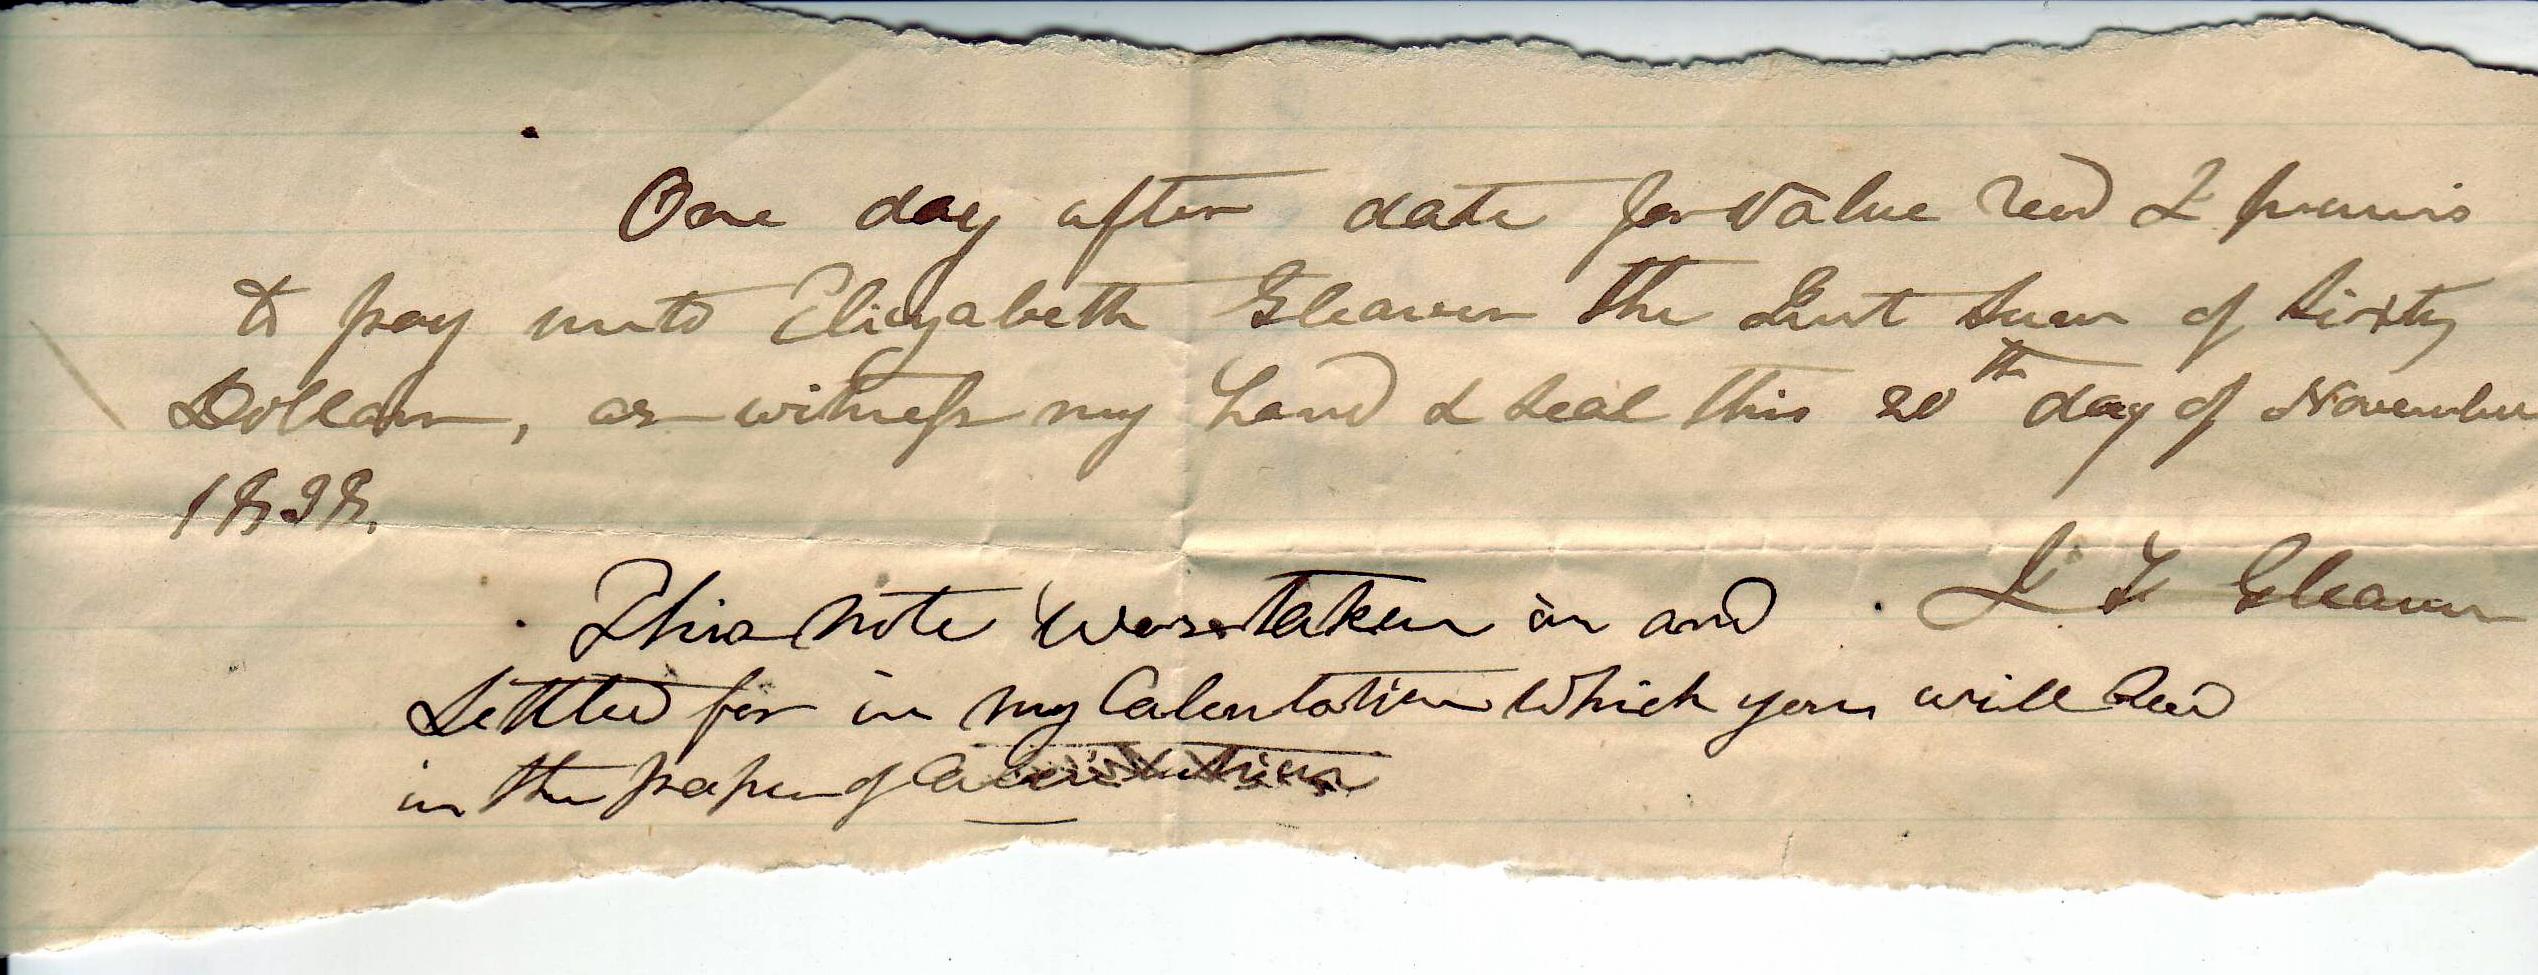 One day after date for Value Recd I promis
to pay unto Elizabeth Gleaves the Just Sum of Sixty
Dollars, as witness my hand & seal this 20th day of November
1838.
J T Gleaves
This note was taken in and
Settled for in my Calculation which you will Read
in the paper of